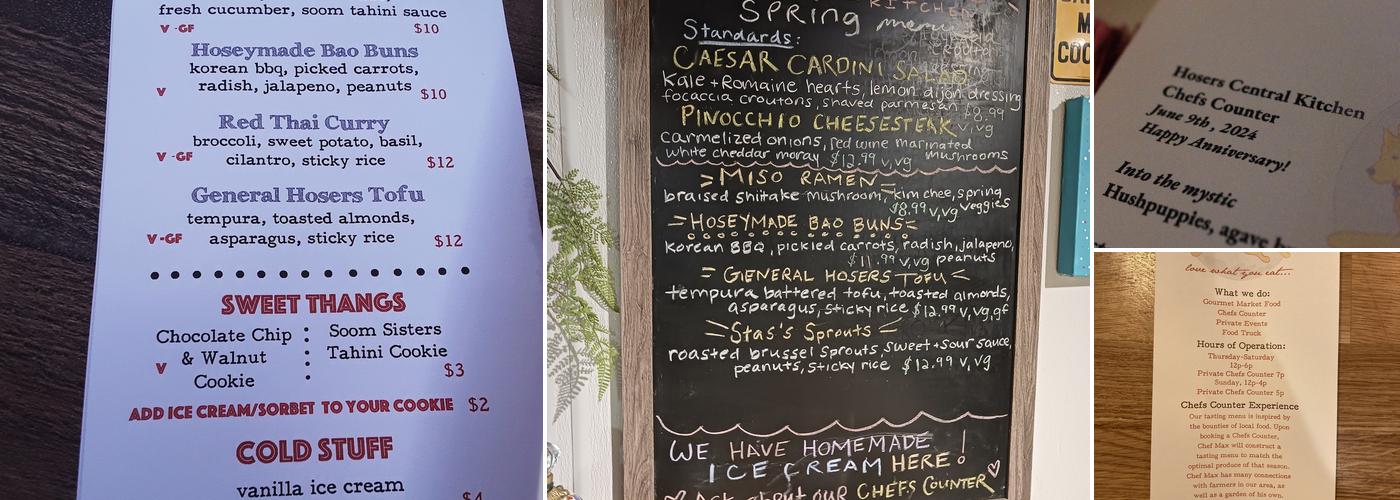 fresh cucumber, soom tahini sauce
V -GF $10
Hoseymade Bao Buns
korean bbq, picked carrots,
radish, jalapeno, peanuts
V $10
Red Thai Curry
broccoli, sweet potato, basil,
V -GF cilantro, sticky rice $12
General Hosers Tofu
tempura, toasted almonds,
V -GF asparagus, sticky rice $12
SWEET THANGS
Chocolate Chip
& Walnut
Cookie
V
Soom Sisters
Tahini Cookie
$3
ADD ICE CREAM/SORBET TO YOUR COOKIE $2
COLD STUFF
vanilla ice cream
$4
KITCHEN
Spring menu
Standards:
CAESAR CARDINI SALAD
Kale + Romaine hearts, lemon dijon dressing
focaccia croutons, shaved parmesan $8.99
PINOCCHIO CHEESESTEAK v,vg
carmelized onions, red wine marinated
white cheddar moray $12.99 v,vg mushrooms
MISO RAMEN
braised shiitake mushroom, kim chee, spring
$8.99 v,vg veggies
HOSEYMADE BAO BUNS
Korean BBQ, pickled carrots, radish, jalapeno,
$11.99 v,vg peanuts
GENERAL HOSERS TOFU
tempura battered tofu, toasted almonds,
asparagus, sticky rice $12.99 v,vg,gf
Stas's Sprouts
roasted brussel sprouts, sweet + sour sauce,
peanuts, sticky rice $12.99 v,vg
WE HAVE HOMEMADE
ICE CREAM HERE!
Ask about our CHEFS COUNTER
COO
Hosers Central Kitchen
Chefs Counter
June 9th, 2024
Happy Anniversary!
Into the mystic
Hushpuppies, agave
love what you eat...
What we do:
Gourmet Market Food
Chefs Counter
Private Events
Food Truck
Hours of Operation:
Thursday-Saturday
12p-6p
Private Chefs Counter 7p
Sunday, 12p-4p
Private Chefs Counter 5p
Chefs Counter Experience
Our tasting menu is inspired by
the bounties of local food. Upon
booking a Chefs Counter,
Chef Max will construct a
tasting menu to match the
optimal produce of that season.
Chef Max has many connections
with farmers in our area, as
well as a garden of his own.